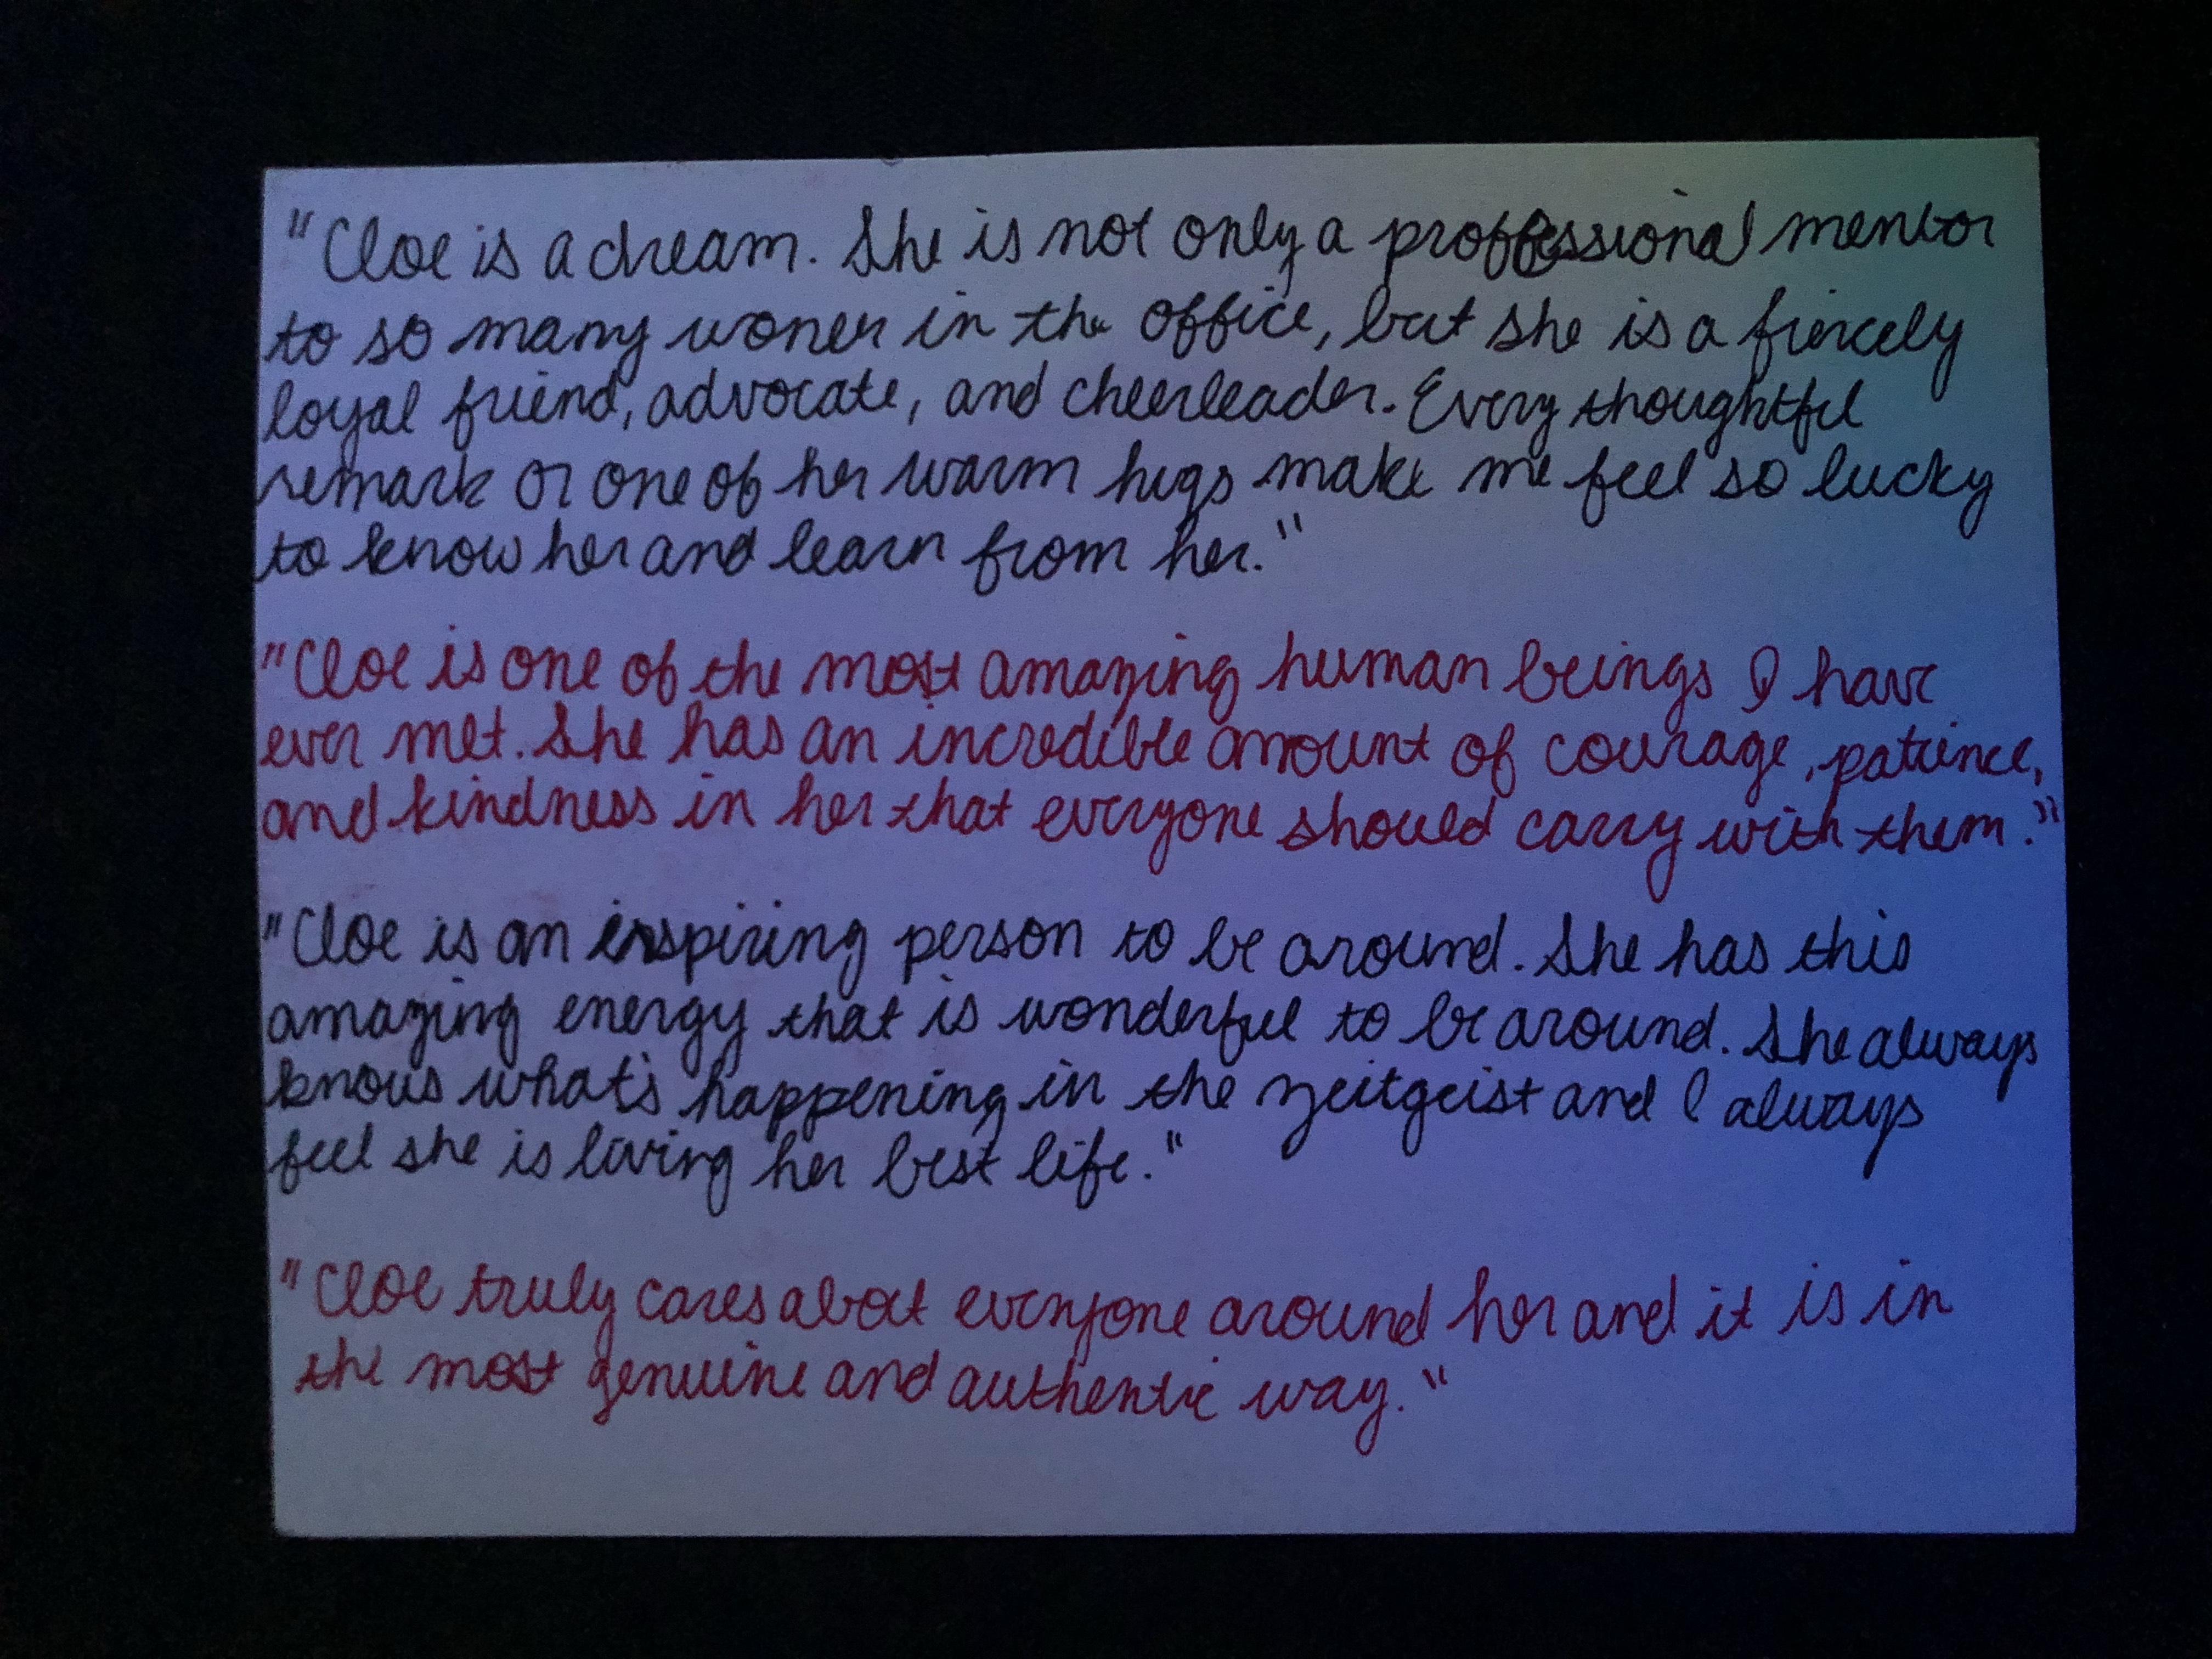 "Cloe is a dream. She is not only a proffessional mentor
to so many women in the office, but she is a fiercely
loyal friend, advocate, and cheerleader. Every thoughtful
remark or one of her warm hugs make me feel so lucky
to know her and learn from her."
"Cloe is one of the most amazing human beings I have
ever met. She has an incredible amount of courage, patience,
and kindness in her that everyone should carry with them."
"Cloe is an inspiring person to be around. She has this
amazing energy that is wonderful to be around. She always
knows what's happening in the zeitgeist and I always
feel she is living her best life."
"Cloe truly cares about everyone around her and it is in
the most genuine and authentic way."